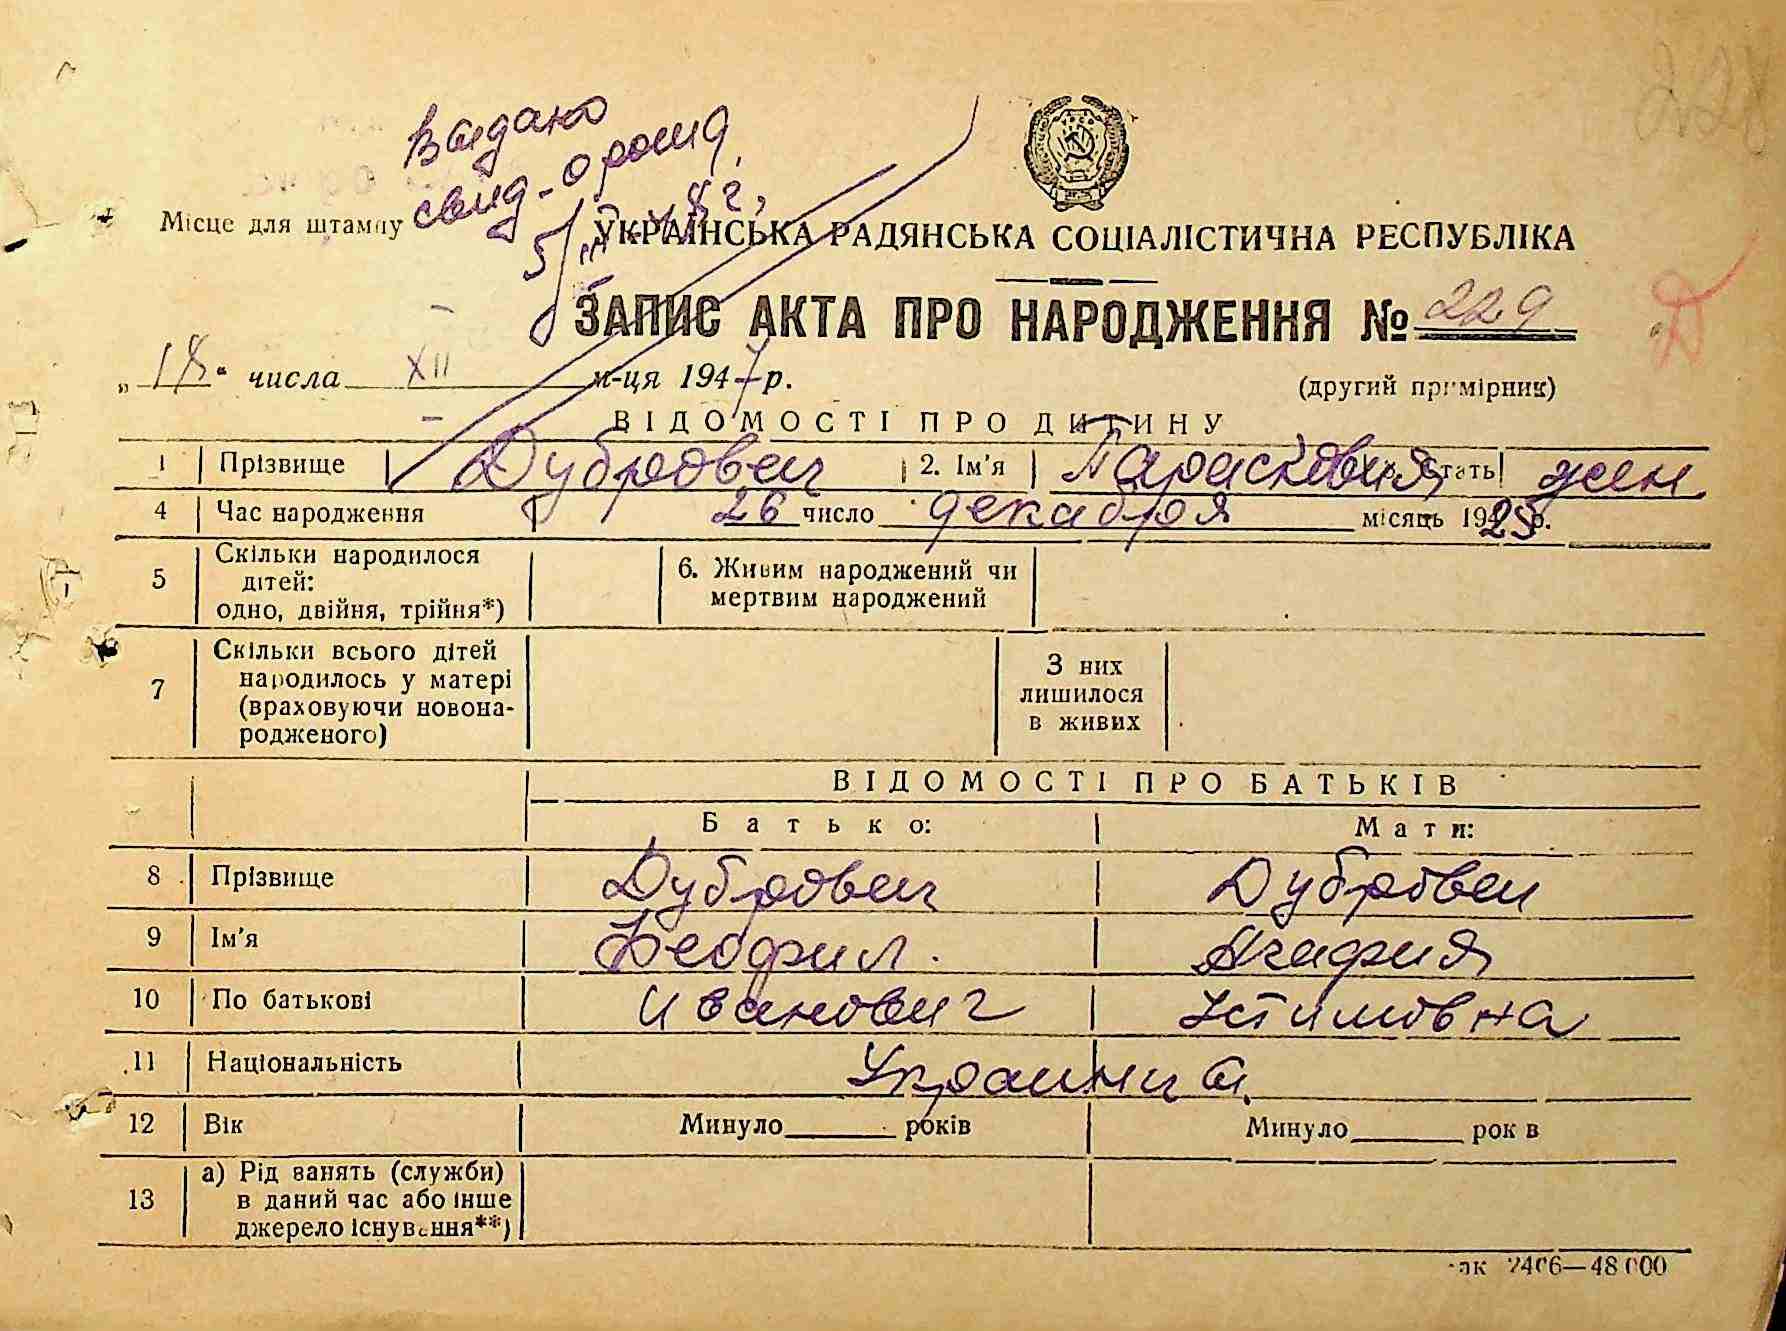 228
Видано
свид-о рожд.
5/III-48 г.
Місце для штампу
УКРАЇНСЬКА РАДЯНСЬКА СОЦІАЛІСТИЧНА РЕСПУБЛІКА
ЗАПИС АКТА ПРО НАРОДЖЕННЯ № 229
Д
„18“ числа XII м-ця 1947 р.
(другий примірник)
ВІДОМОСТІ ПРО ДИТИНУ
1 Прізвище Дубровец 2. Ім'я Парасковия Стать жен
4 Час народження 26 число декабря місяць 1925 р.
5 Скільки народилося дітей: одно, двійня, трійня*) 6. Живим народжений чи мертвим народжений
7 Скільки всього дітей народилось у матері (враховуючи новонародженого) З них лишилося в живих
ВІДОМОСТІ ПРО БАТЬКІВ
Батько: Мати:
8 Прізвище Дубровец Дубровец
9 Ім'я Феофил. Агафия
10 По батькові Иванович Устимовна
11 Національність Украинцы.
12 Вік Минуло років Минуло рок в
13 а) Рід занять (служби) в даний час або інше джерело існування**)
2406—48 000